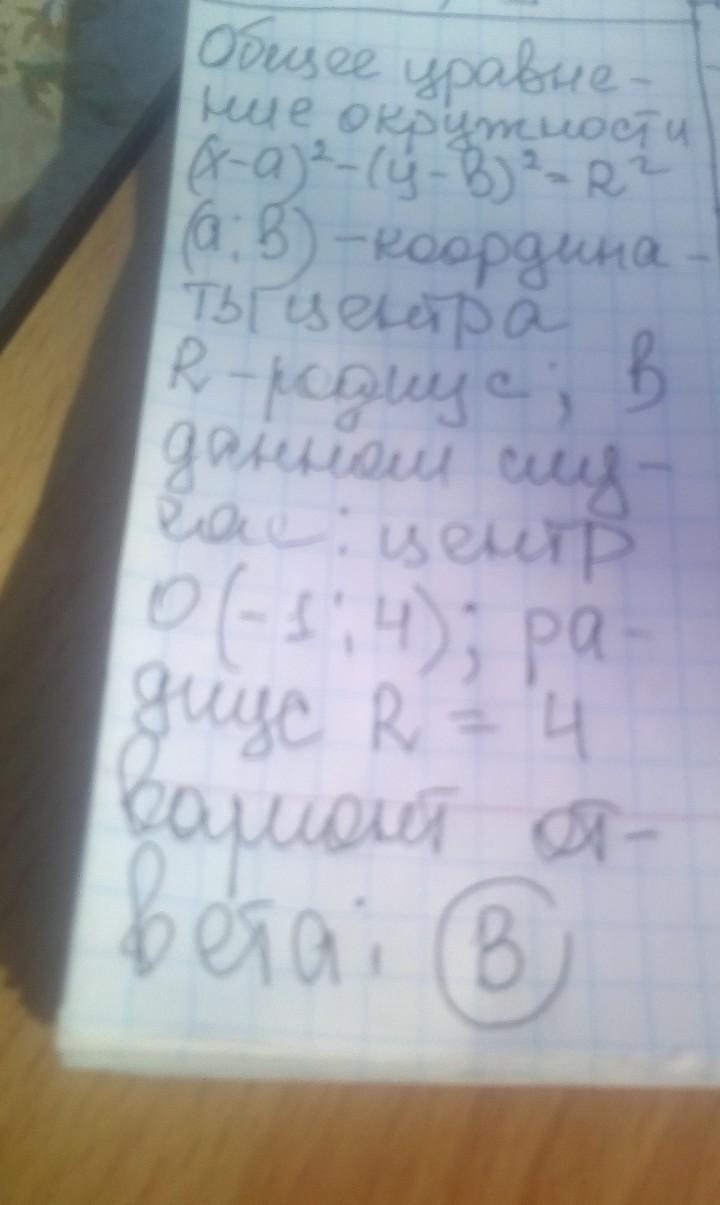 Общее уравне-
ние окружности
(х-а)²-(у-в)²=R²
(а;в) -координа-
ты центра
R -радиус; В
данном слу-
чае: центр
О(-1;4); ра-
диус R = 4
вариант от-
вета: В